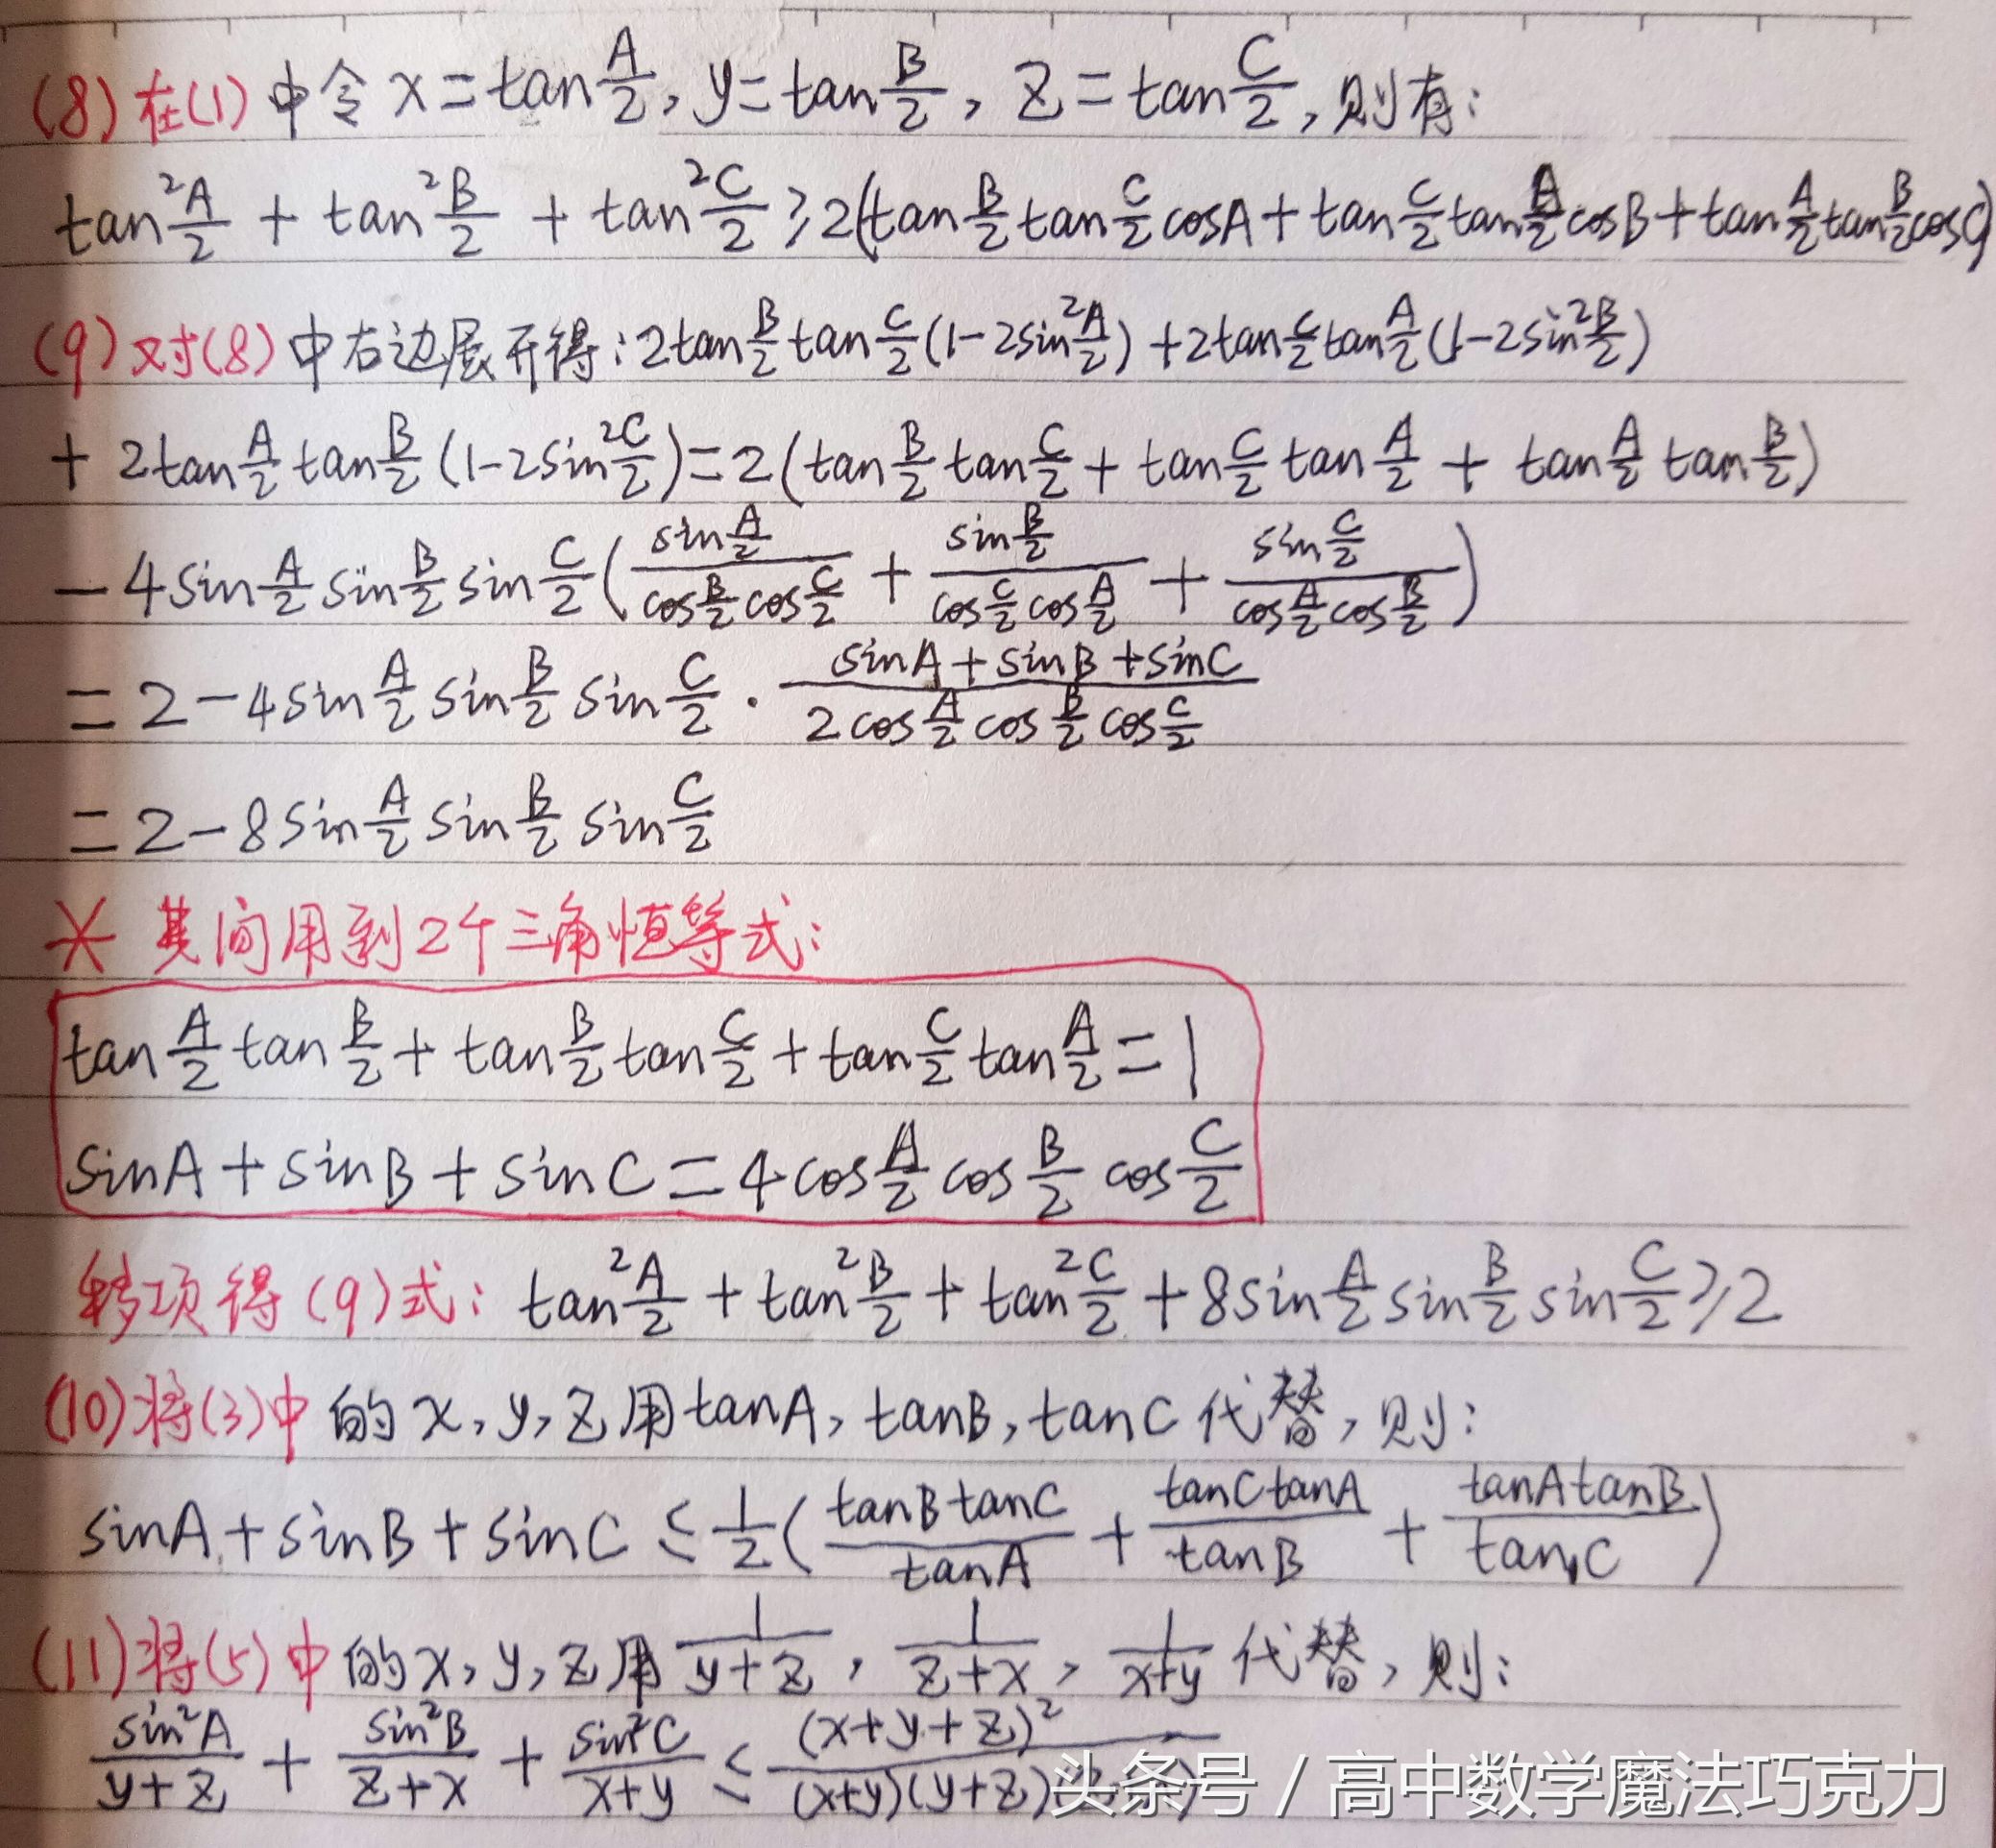 (8)在(1)中令 x=tan A/2, y=tan B/2, z=tan C/2, 则有:
tan²A/2 + tan²B/2 + tan²C/2 ≥ 2(tan B/2 tan C/2 cosA + tan C/2 tan A/2 cosB + tan A/2 tan B/2 cosC)
(9)对(8)中右边展开得: 2tan B/2 tan C/2 (1-2sin²A/2) + 2tan C/2 tan A/2 (1-2sin²B/2)
+ 2tan A/2 tan B/2 (1-2sin²C/2) = 2(tan B/2 tan C/2 + tan C/2 tan A/2 + tan A/2 tan B/2)
- 4sin A/2 sin B/2 sin C/2 ( sin A/2 / (cos B/2 cos C/2) + sin B/2 / (cos C/2 cos A/2) + sin C/2 / (cos A/2 cos B/2) )
= 2 - 4sin A/2 sin B/2 sin C/2 · (sinA + sinB + sinC) / (2cos A/2 cos B/2 cos C/2)
= 2 - 8sin A/2 sin B/2 sin C/2
* 其间用到2个三角恒等式:
tan A/2 tan B/2 + tan B/2 tan C/2 + tan C/2 tan A/2 = 1
sinA + sinB + sinC = 4cos A/2 cos B/2 cos C/2
移项得(9)式: tan²A/2 + tan²B/2 + tan²C/2 + 8sin A/2 sin B/2 sin C/2 ≥ 2
(10)将(3)中的x, y, z用tanA, tanB, tanC代替, 则:
sinA + sinB + sinC ≤ 1/2 ( tanB tanC / tanA + tanC tanA / tanB + tanA tanB / tanC )
(11)将(5)中的x, y, z用 1/(y+z), 1/(z+x), 1/(x+y) 代替, 则:
sin²A/(y+z) + sin²B/(z+x) + sin²C/(x+y) ≤ (x+y+z)² / (x+y)(y+z)
头条号 / 高中数学魔法巧克力